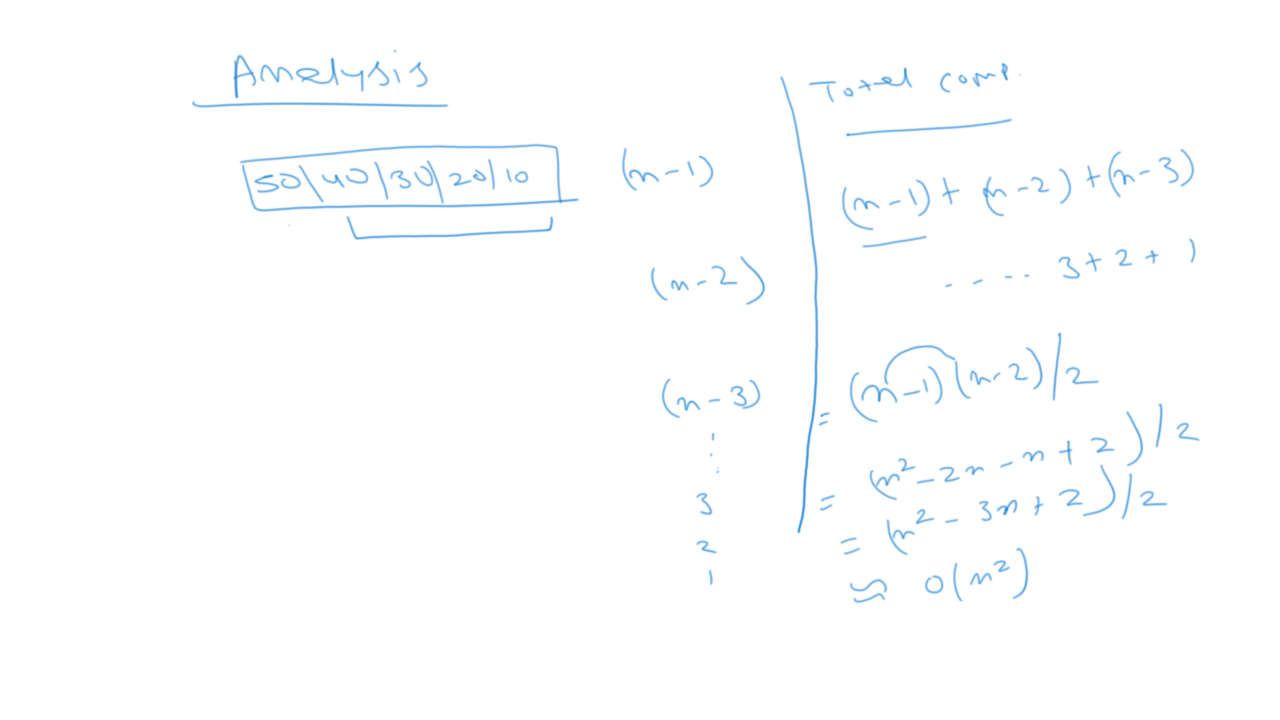 Analysis
50|40|30|20|10
(n-1)
(n-2)
(n-3)
⋮
3
2
1
Total comp.
(n-1) + (n-2) + (n-3)
.... 3 + 2 + 1
= (n-1)(n-2)/2
= (n²-2n-n+2)/2
= (n²-3n+2)/2
≈ O(n²)